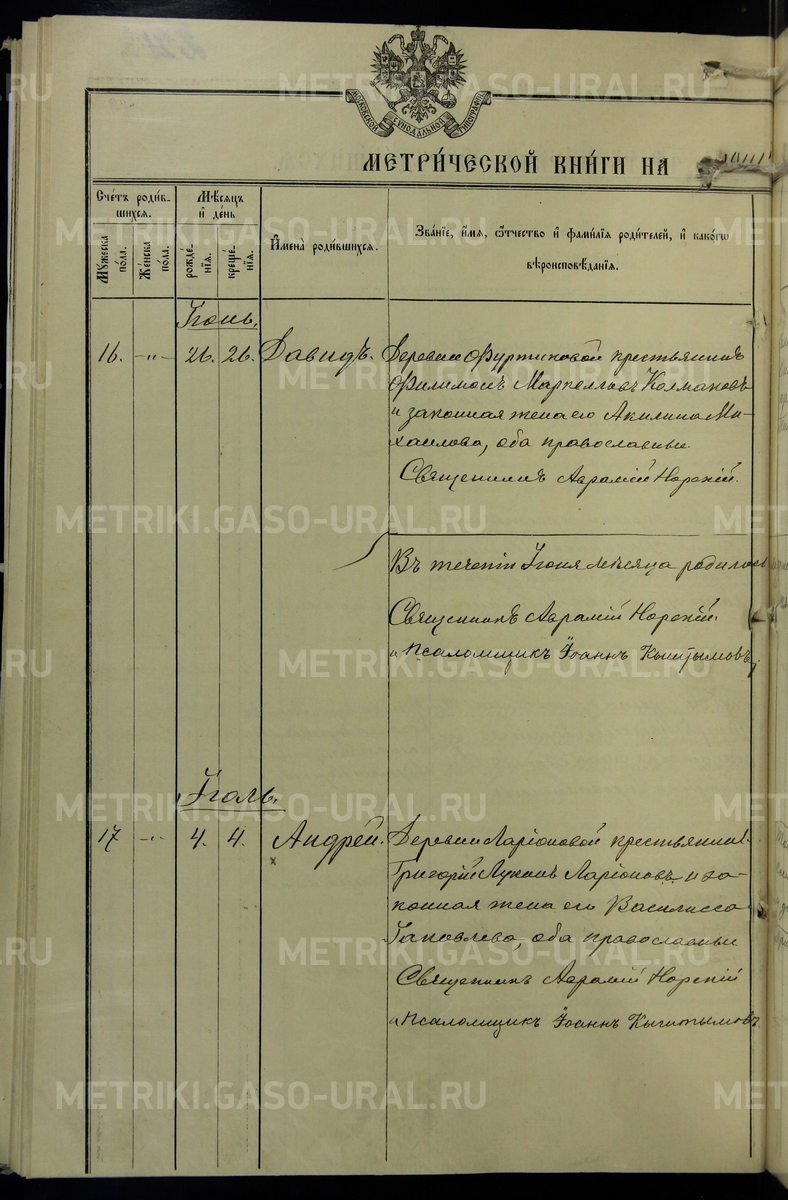 МОСКОВСКОЙ СѴНОДАЛЬНОЙ ТИПОГРАФІИ
МЕТРИ́ЧЕСКОЙ КНИ́ГИ НА
Сче́тъ роди́в-
шихся.
Мѣ́сяцъ
и҆ де́нь
Му́жеска
по́ла.
Же́нска
по́ла.
рожде́-
нїѧ.
креще́-
нїѧ.
И҆мена̀ роди́вшихся.
Зва́нїе, и҆́мѧ, ѻ҆́тчество и҆ фами́лїѧ роди́телей, и҆ како́гѡ
вѣроисповѣ́данїѧ.
Іюнь.
16. -"- 26. 26. Давидъ. Деревни Фуртиковой крестьянинъ
Филимонъ Маркелловъ Колмаковъ
и законная жена его Акилина Ми-
хаилова, оба православные.
Священникъ Аврамій Норскій.
Въ теченіи Іюня мѣсяца родилось
Священникъ Аврамій Норскій.
и Псаломщикъ Іоаннъ Кыштымовъ
Іюль.
17 -"- 4. 4. Андрей. Деревни Ларіоновой крестьянинъ
Григорій Лукинъ Ларіоновъ и за-
конная жена его Василисса
Іаковлева, оба православные
Священникъ Аврамій Норскій
и Псаломщикъ Іоаннъ Кыштымовъ.
METRIKI.GASO-URAL.RU